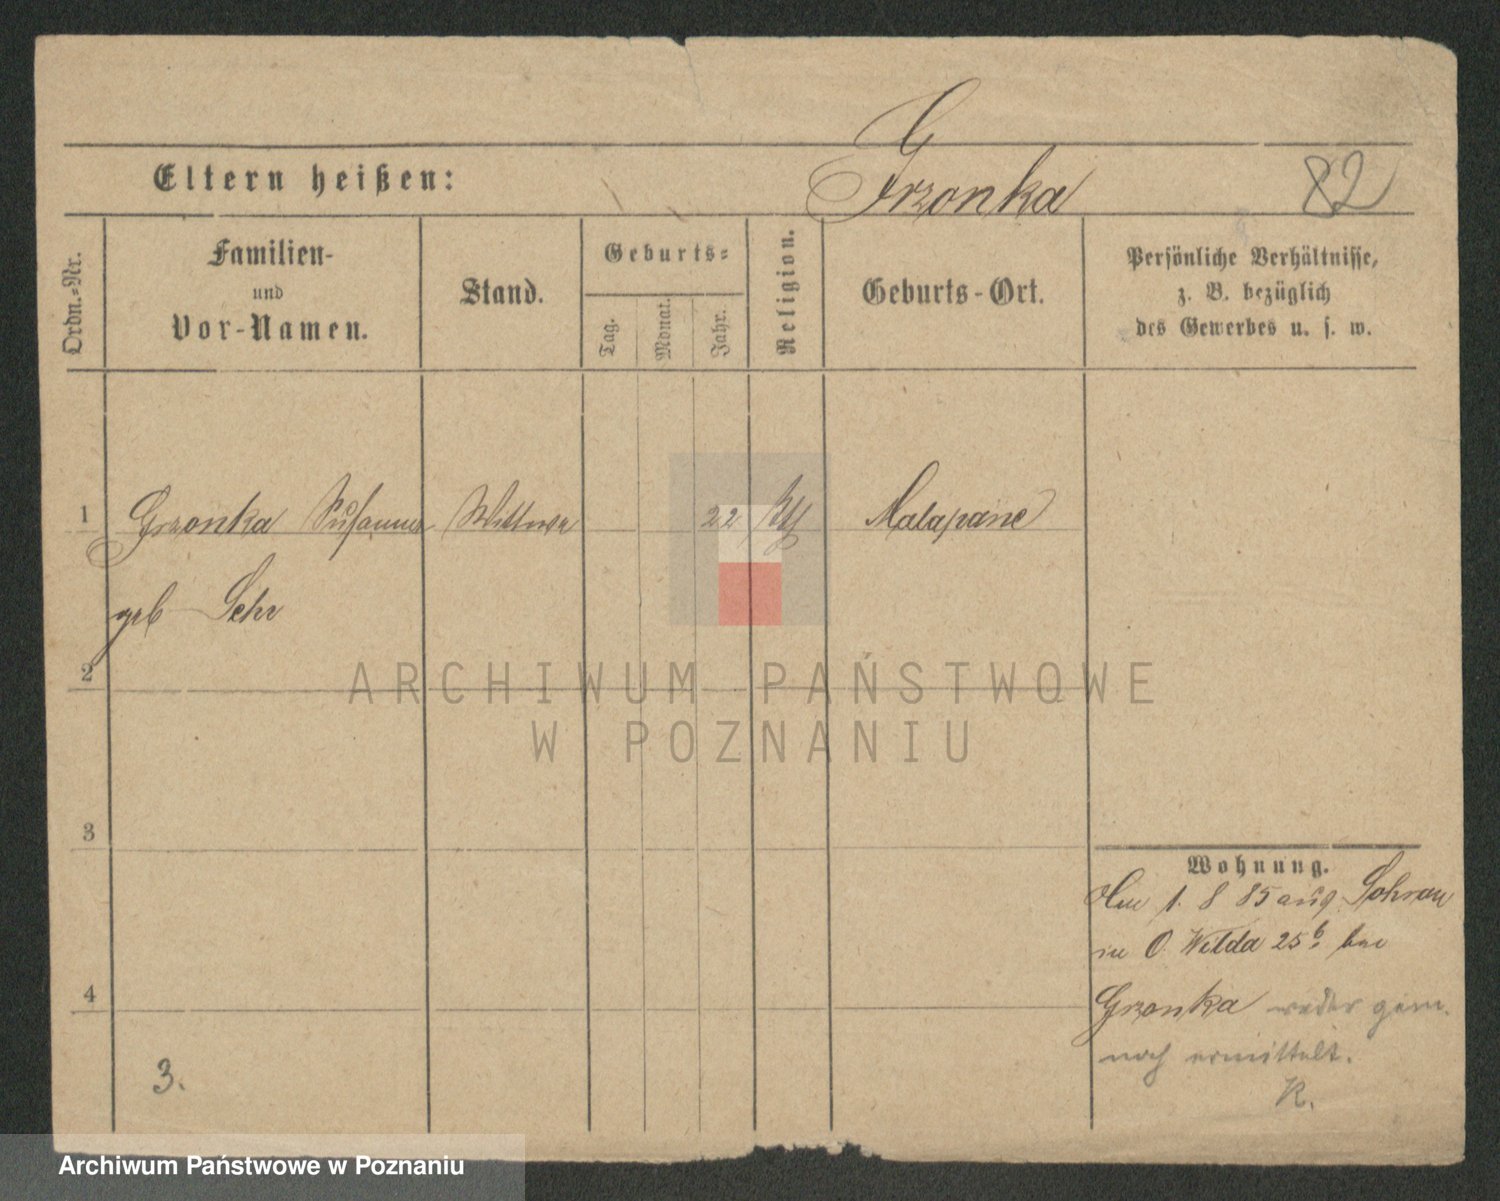 Grzonka
82
Eltern heißen:
Ordn.-Nr.
Familien-
und
Vor-Namen.
Stand.
Geburts-
Tag.
Monat.
Jahr.
Religion.
Geburts-Ort.
Persönliche Verhältnisse,
z. B. bezüglich
des Gewerbes u. s. w.
1
Grzonka Susanna Wittwe 22 Malapane
geb
2
ARCHIWUM PAŃSTWOWE
W POZNANIU
3
Wohnung.
1. 8 85 aus Sohrau
in O. Wilda 25 b. bei
4
Grzonka weder gem.
noch ermittelt.
R.
3.
Archiwum Państwowe w Poznaniu